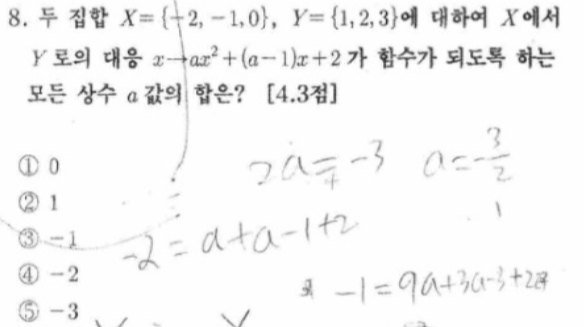 8. 두 집합 X={-2, -1, 0}, Y={1, 2, 3}에 대하여 X에서
Y로의 대응 x→ax²+(a-1)x+2 가 함수가 되도록 하는
모든 상수 a 값의 합은? [4.3점]
① 0
2a=-3 a=-3/2
② 1
1
③ -1
-2=a+a-1+2
④ -2
-1=9a+3a-3+2
⑤ -3